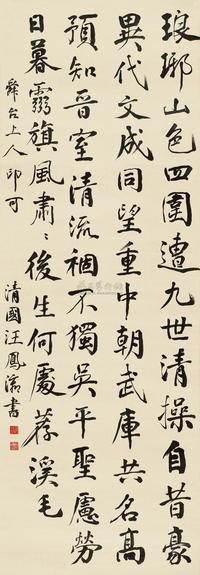 琅琊山色四圍遭九世清操自昔豪
異代文成同望重中朝武庫共名高
預知晉室清流禍不獨吳平聖慮勞
日暮靈旗風肅〻後生何處荐溪毛
舜台上人印可
清國汪鳳瀛書